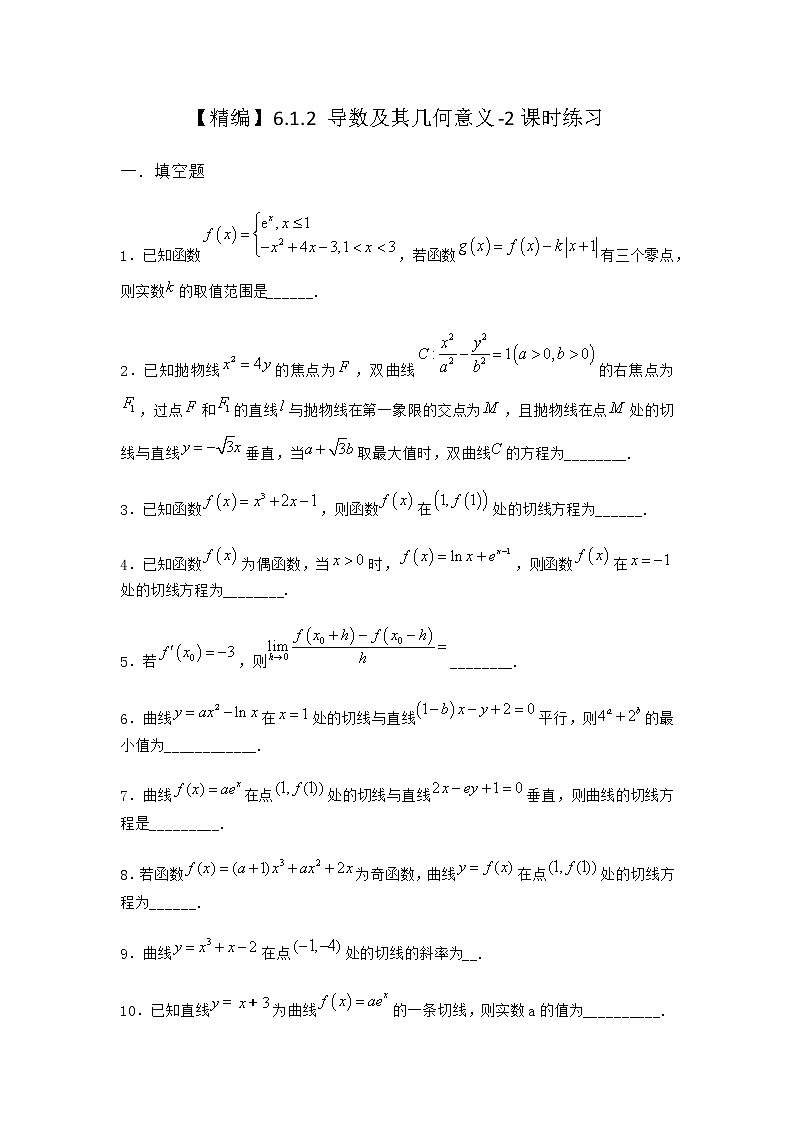 【精编】6.1.2 导数及其几何意义-2课时练习
一.填空题
1.已知函数 f(x)={e^x, x≤1; -x²+4x-3, 1<x<3 ,若函数 g(x)=f(x)-k|x+1| 有三个零点,
则实数 k 的取值范围是______.
2.已知抛物线 x²=4y 的焦点为 F ,双曲线 C: x²/a² - y²/b² =1(a>0,b>0) 的右焦点为
F₁ ,过点 F 和 F₁ 的直线 l 与抛物线在第一象限的交点为 M ,且抛物线在点 M 处的切
线与直线 y=-√3x 垂直,当 a+√3b 取最大值时,双曲线 C 的方程为________.
3.已知函数 f(x)=x³+2x-1 ,则函数 f(x) 在 (1,f(1)) 处的切线方程为______.
4.已知函数 f(x) 为偶函数,当 x>0 时, f(x)=ln x+e^(x-1) ,则函数 f(x) 在 x=-1
处的切线方程为________.
5.若 f′(x₀)=-3 ,则 lim_(h→0) (f(x₀+h)-f(x₀-h))/h = ________.
6.曲线 y=ax²-ln x 在 x=1 处的切线与直线 (1-b)x-y+2=0 平行,则 4^a+2^b 的最
小值为____________.
7.曲线 f(x)=ae^x 在点 (1,f(1)) 处的切线与直线 2x-ey+1=0 垂直,则曲线的切线方
程是_________.
8.若函数 f(x)=(a+1)x³+ax²+2x 为奇函数,曲线 y=f(x) 在点 (1,f(1)) 处的切线方
程为______.
9.曲线 y=x³+x-2 在点 (-1,-4) 处的切线的斜率为__.
10.已知直线 y= x+3 为曲线 f(x)=ae^x 的一条切线,则实数a的值为__________.